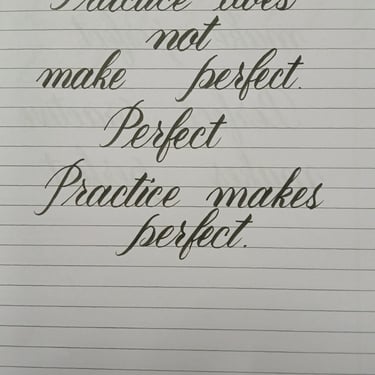 Practice does
not
make perfect.
Perfect
Practice makes
perfect.